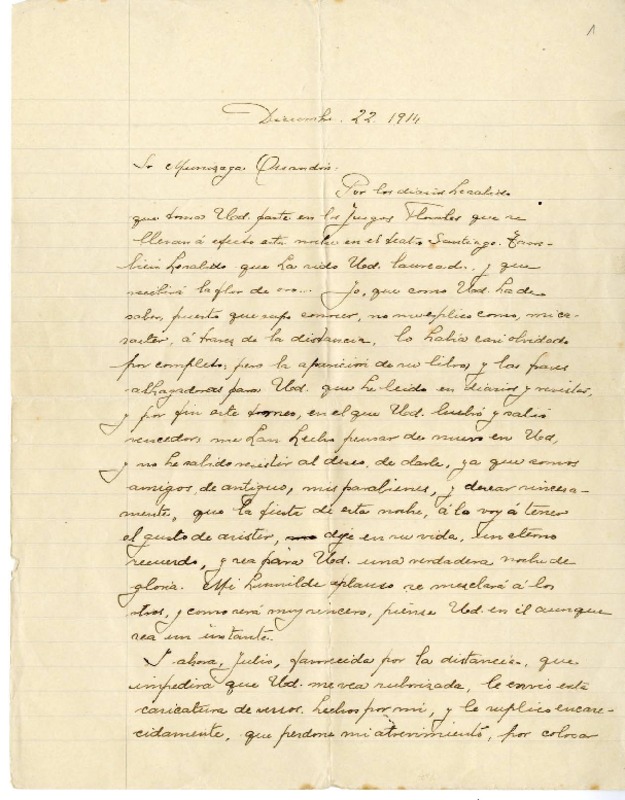 1
Diciembre. 22. 1914
Sr Munizaga Ossandón.
Por los diarios he sabido
que toma Ud. parte en los Juegos Florales que se
llevan á efecto esta noche en el teatro Santiago. Tam-
bien he sabido que ha sido Ud. laureado, y que
recibirá la flor de oro... Yo, que como Ud. ha de
saber, puesto que supo conocer, no me explico como, mi ca-
racter, á traves de la distancia, lo habia casi olvidado
por completo; pero la aparición de su libros y las frases
alhagadoras para Ud. que he leido en diarios y revistas,
y por fin este torneo, en el que Ud. luchó y salió
vencedor, me han hecho pensar de nuevo en Ud,
y no he sabido resistir al deseo de darle, ya que somos
amigos de antiguo, mis parabienes, y desear sincera-
mente, que la fiesta de esta noche, á la voy á tener
el gusto de asistir, deje en su vida, un eterno
recuerdo, y sea para Ud. una verdadera noche de
gloria. Mi humilde aplauso se mezclará á los
otros, y como será muy sincero, piense Ud. en él aunque
sea un instante.
I ahora, Julio, favorecida por la distancia, que
impedirá que Ud. me vea ruborizada, le envio esta
caricatura de versos. hechos por mi, y le suplico encare-
cidamente, que perdone mi atrevimiento, por colocar